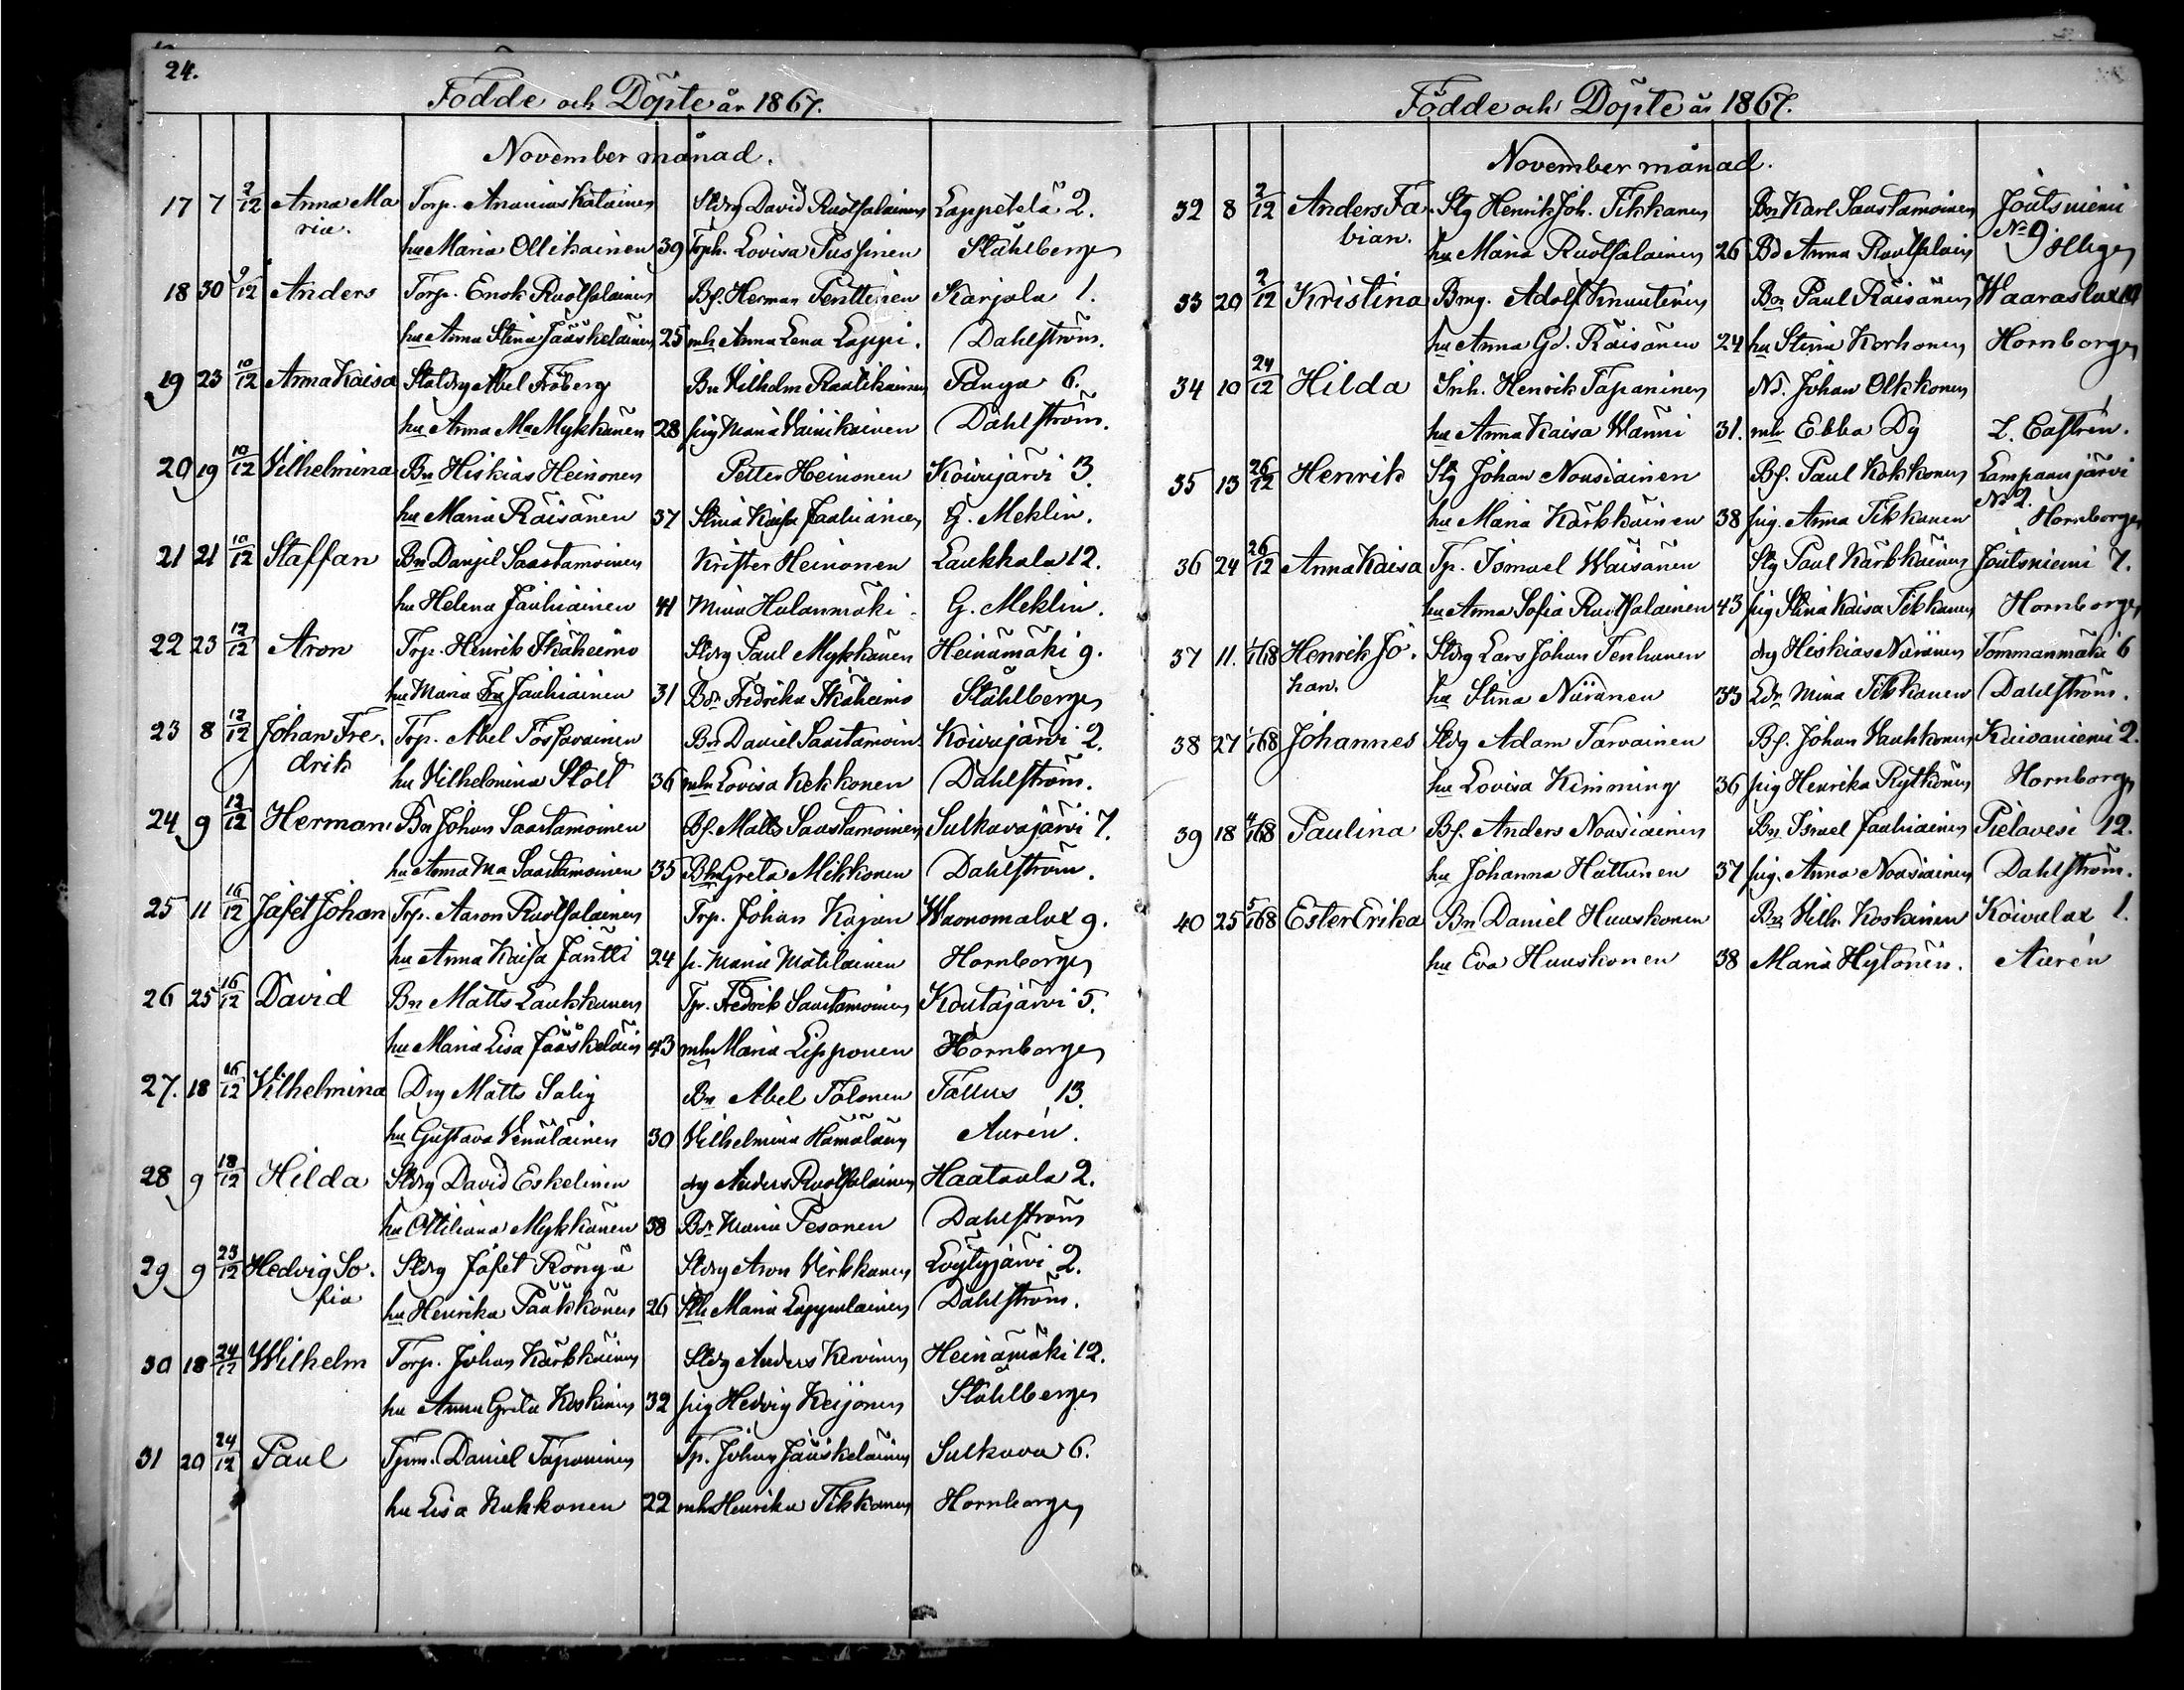 24.
Födde och Döpte år 1867.
November månad.
17 7 2/12 Anna Ma Torp. Ananias Katainen Stdrg David Ruotsalainen Lappetelä 2.
ria. hu Maria Ollikainen 39 Torph. Lovisa Pussinen Ståhlberg
18 30 9/12 Anders Torp. Enok Ruotsalainen Bs. Herman Penttinen Karjala 1.
hu Anna Stina Jääskeläinen 25 mh Anna Lena Lappi. Dahlström.
19 23 10/12 Anna Kaisa Statdrg Abel Fröberg Bn Vilhelm Raatikainen Panga 6.
hu Anna Ma Mykkänen 28 pig Maria Vainikainen Dahlström.
20 19 10/12 Vilhelmina Bn Hiskias Heinonen Petter Heinonen Koivujärvi 13.
hu Maria Räisänen 37 Stina Kaisa Jauhiainen G. Meklin.
21 21 10/12 Staffan Bn Danjel Saastamoinen Krister Heinonen Laukkala 12.
hu Helena Jauhiainen 41 Mina Halanmäki G. Meklin.
22 23 12/12 Aron Trp. Henrik Ikäheimo Stdrg Paul Mykkänen Heinämäki 9.
hu Maria Jauhiainen 31 Bdr Fredrika Ikäheimo Ståhlberg
23 8 12/12 Johan Fre- Trp. Abel Tossavainen Bn Daniel Saastamoin. Koivujärvi 2.
drik hu Vilhelmina Stolt 36 mh Lovisa Kekkonen Dahlström.
24 9 12/12 Herman Bn Johan Saastamoinen Bs. Matts Saastamoinen Sulkavajärvi 7.
hu Anna Ma Saastamoinen 35 Bhu Greta Mikkonen Dahlström.
25 11 16/12 Jafet Johan Trp. Aaron Ruotsalainen Trp. Johan Kajan Waonomalax 9.
hu Anna Kaisa Jantti 24 p. Maria Matilainen Hornborg
26 25 16/12 David Bn Matts Laukkanen Tp. Fredrik Saastamoinen Koutajärvi 5.
hu Maria Lisa Jääskeläin 43 mh Maria Lipponen Hornborg
27. 18 16/12 Vilhelmina Drg Matts Salig Bn Abel Tolonen Tallus 13.
hu Gustava Venäläinen 30 Vilhelmina Hämäläin Aurén.
28 9 18/12 Hilda Stdrg David Eskelinen drg Anders Ruotsalainen Haatala 2.
hu Ottiliana Mykkänen 38 Bdr Maria Pesonen Dahlström
29 9 23/12 Hedvig So- Stdrg Jafet Rönqä Stdrg Aron Virkkanen Löytyjärvi 2.
fia hu Henrika Pääkkönen 26 Sth Maria Lappalainen Dahlström.
30 18 24/12 Wilhelm Torp. Johan Kärkkäinen Stdrg Anders Kervinen Heinämäki 12.
hu Anna Greta Koskinen 32 pig Hedvig Keijonen Ståhlberg
31 20 24/12 Paul Tpm. Daniel Taponinen Tp. Johan Jääskeläinen Sulkava 6.
hu Lisa Kukkonen 22 mh Henrika Tikkanen Hornborg
Födde och Döpte år 1867.
November månad.
32 8 2/12 Anders Fa- Stg Henrik Joh. Tikkanen Bn Karl Saastamoinen Joutsniemi
bian. hu Maria Ruotsalainen 26 Bd Anna Ruotsalain No 9.
33 20 2/12 Kristina Bmg. Adolf Knuutinen Bn Paul Räisänen Waaraslax 10
hu Anna Gd. Räisänen 24 hu Stina Korhonen Hornborg
34 10 24/12 Hilda Inh. Henrik Tapaninen Nd. Johan Olkkonen
hu Anna Kaisa Wänni 31. mh Ebba Dg L. Castrén.
35 13 26/12 Henrik Stg Johan Nousiainen Bs. Paul Kokkonen Lampaanjärvi
hu Maria Kärkkäinen 38 pig. Anna Tikkanen No 2. Hornborg
36 24 26/12 Anna Kaisa Tp. Ismael Waisänen Stg Paul Kärkkäinen Joutsniemi 7.
hu Anna Sofia Ruotsalainen 43 pig Stina Kaisa Tikkanen Hornborg
37 11. 1/1 68 Henrik Jo- Stdrg Lars Johan Tenhunen drg Hiskias Näränen Tommanmäki 6
han. hu Stina Näränen 33 Ldr Mina Tikkanen Dahlström.
38 27 1/1 68 Johannes Stdrg Adam Tarvainen Bs. Johan Vauhkonen Kaivaniemi 2.
hu Lovisa Kimming 36 pig Henrika Rytkönen Hornborg
39 18 4/1 68 Paulina Bs. Anders Nousiainen Bn Ismel Jauhiainen Pielavesi 12.
hu Johanna Hattunen 37 pig. Anna Nousiainen Dahlström.
40 25 5/1 68 Ester Erika Bn Daniel Huuskonen Bn Vilh. Koskinen Koivulax 1.
hu Eva Huuskonen 38 Maria Hytönen. Aurén